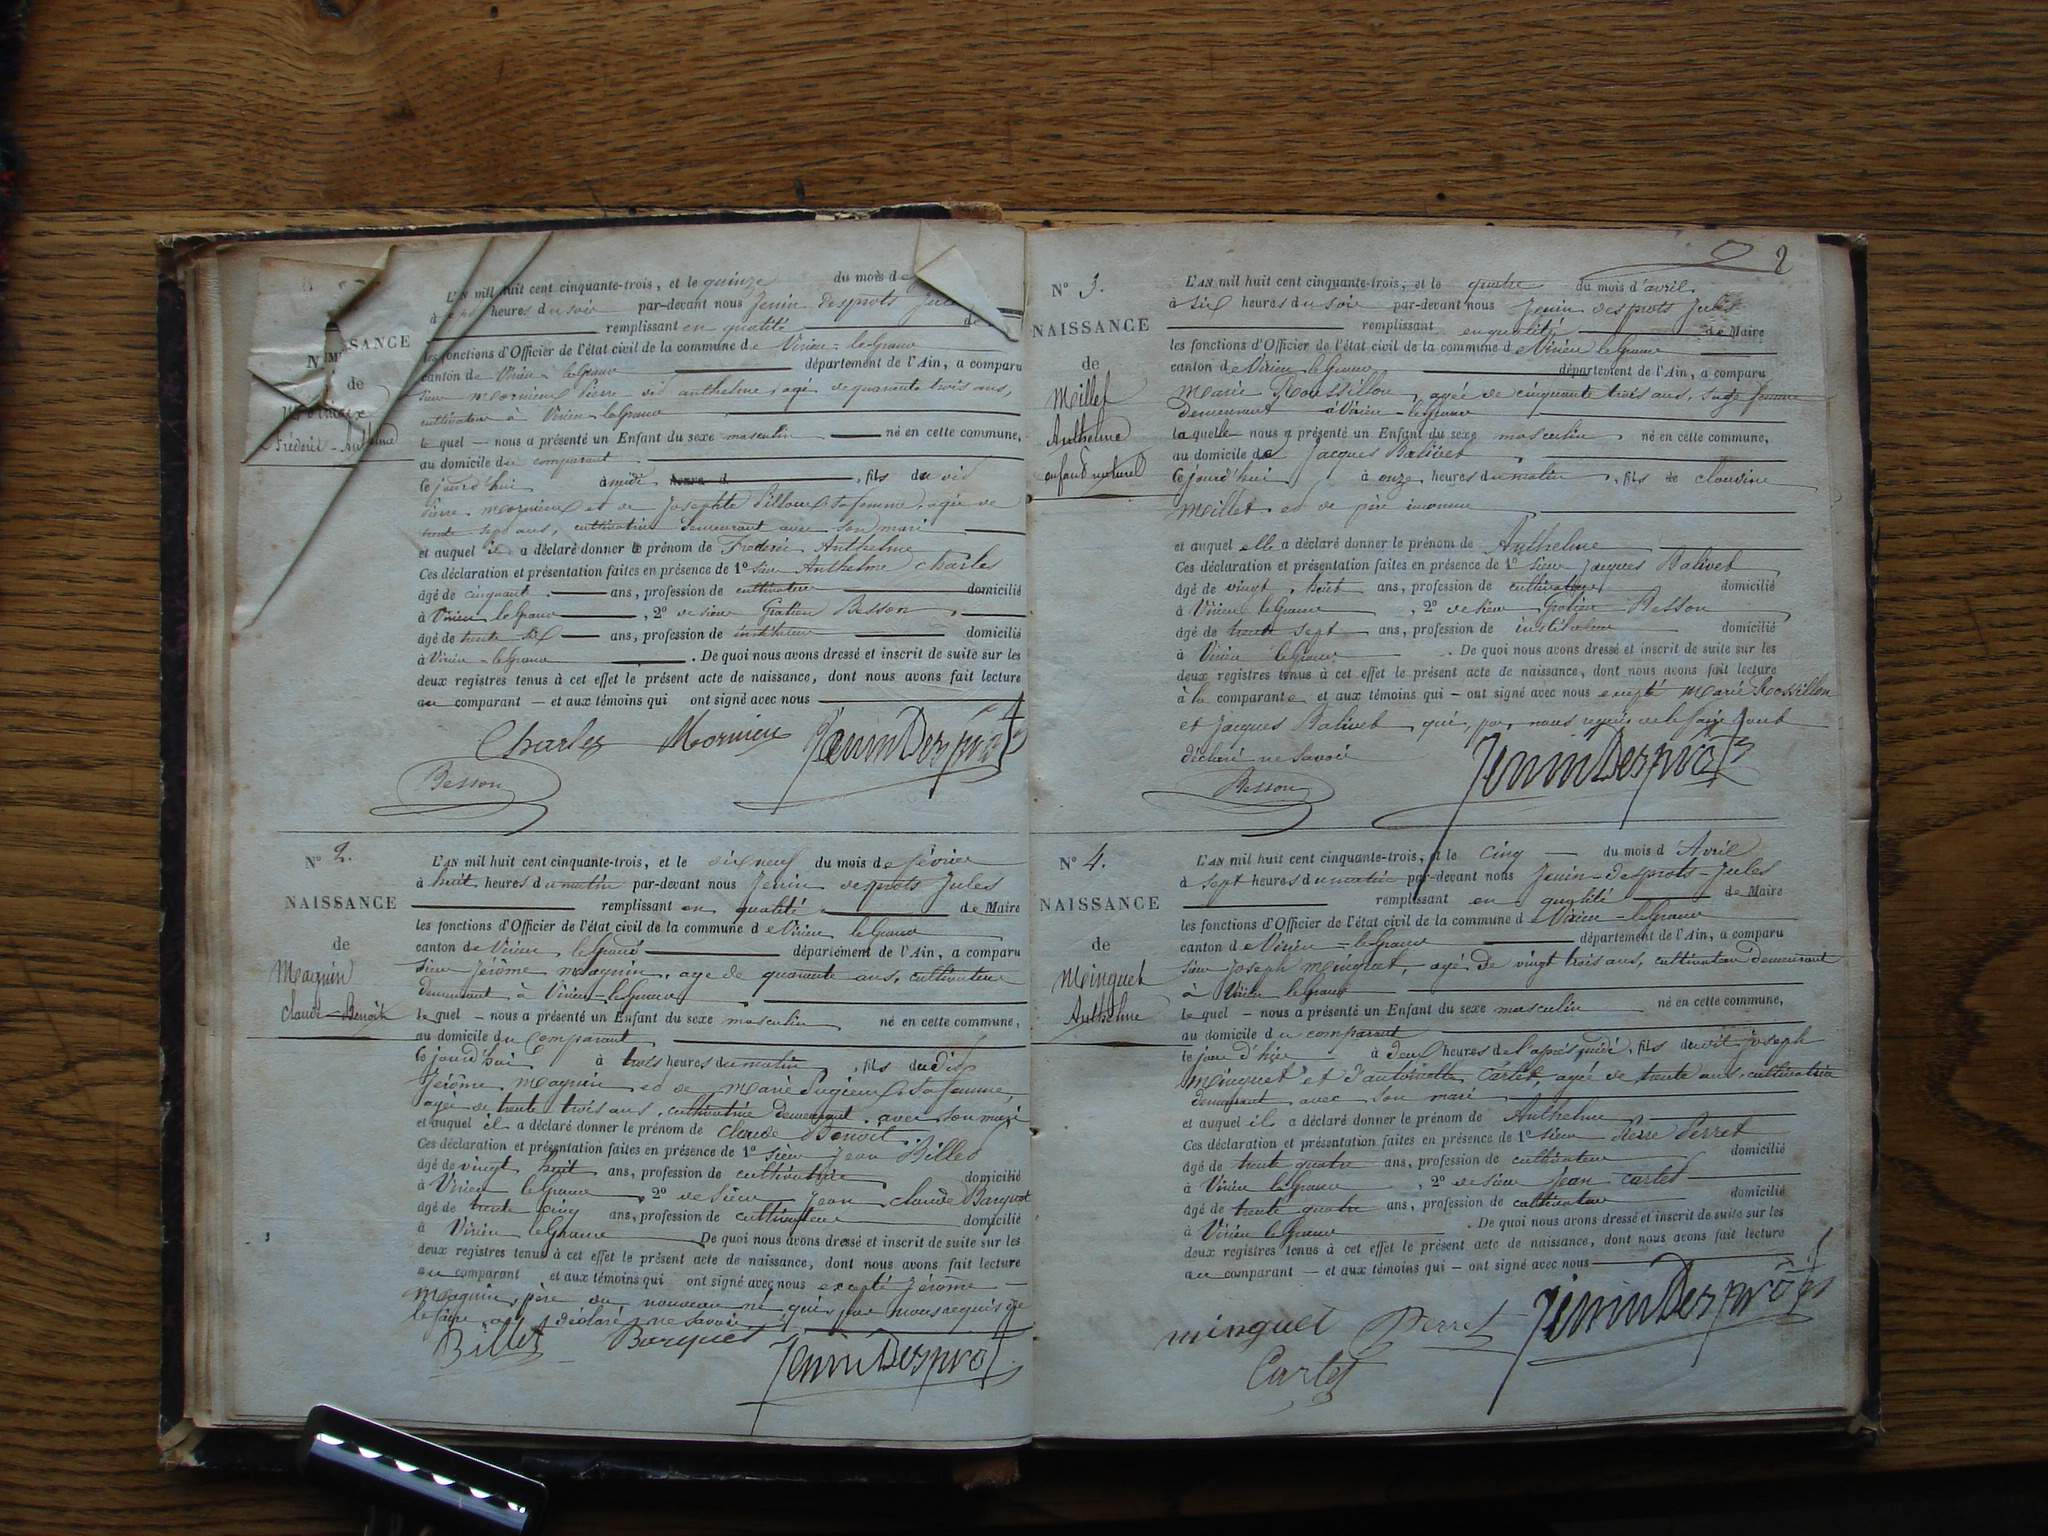 L'AN mil huit cent cinquante-trois, et le quinze du mois d
à heures du soir par-devant nous Jenin desprots
remplissant en qualité
les fonctions d'Officier de l'état civil de la commune de Virieu-le-Grand
canton de Virieu-le-Grand département de l'Ain, a comparu
Sieur Mornieux Pierre dit anthelme, agé de quarante trois ans,
cultivateur à Virieu-le-Grand
le quel nous a présenté un Enfant du sexe masculin né en cette commune,
au domicile du comparant
Ce jourd'hui à midi fils du dit
Pierre Mornieux et de Josephte sa femme, agée de
trente sept ans, cultivatrice demeurant avec son mari
et auquel il a déclaré donner le prénom de Frédéric Anthelme
Ces déclaration et présentation faites en présence de 1° Sieur Anthelme Charles
âgé de cinquante ans, profession de cultivateur domicilié
à Virieu le Grand, 2° de Sieur Gratien Besson,
âgé de trente six ans, profession de instituteur domicilié
à Virieu-le-Grand. De quoi nous avons dressé et inscrit de suite sur les
deux registres tenus à cet effet le présent acte de naissance, dont nous avons fait lecture
au comparant et aux témoins qui ont signé avec nous
Charles Mornieux JeninDesprots
Besson
NAISSANCE
de
Frédéric-Anthelme
N° 2.
NAISSANCE
de
Magnin
Claude-Benoit
L'AN mil huit cent cinquante-trois, et le dix neuf du mois de février
à huit heures du matin par-devant nous Jenin desprots Jules
remplissant en qualité de Maire
les fonctions d'Officier de l'état civil de la commune de Virieu le Grand
canton de Virieu le Grand département de l'Ain, a comparu
Sieur Jérôme Magnin, agé de quarante ans, cultivateur
demeurant à Virieu-le-Grand
le quel nous a présenté un Enfant du sexe masculin né en cette commune,
au domicile du comparant
Ce jourd'hui à trois heures du matin, fils du dit
Jérôme Magnin et de Marie sa femme
agée de trente trois ans, cultivatrice demeurant avec son mari
et auquel il a déclaré donner le prénom de Claude Benoit
Ces déclaration et présentation faites en présence de 1° Sieur Jean Billet
âgé de vingt huit ans, profession de cultivateur domicilié
à Virieu le Grand, 2° de Sieur Jean Claude Barquet
âgé de trente cinq ans, profession de cultivateur domicilié
à Virieu le Grand De quoi nous avons dressé et inscrit de suite sur les
deux registres tenus à cet effet le présent acte de naissance, dont nous avons fait lecture
au comparant et aux témoins qui ont signé avec nous excepté Jérôme
Magnin, père du nouveau né qui, par nous requis de
le faire a déclaré ne savoir
Billet Barquet JeninDesprots
2
N° 3.
NAISSANCE
de
Meillet
Anthelme
enfant naturel
L'AN mil huit cent cinquante-trois, et le quatre du mois d'avril
à six heures du soir par-devant nous Jenin desprots Jules
remplissant en qualité de Maire
les fonctions d'Officier de l'état civil de la commune de Virieu le Grand
canton de Virieu le Grand département de l'Ain, a comparu
Marie Roussillon, agée de cinquante trois ans, sage femme
Demeurant à Virieu-le-Grand
laquelle nous a présenté un Enfant du sexe masculin né en cette commune,
au domicile de Jacques Balivet
Ce jourd'hui à onze heures du matin, fils de Claudine
Meillet et de père inconnu
et auquel elle a déclaré donner le prénom de Anthelme
Ces déclaration et présentation faites en présence de 1° Sieur Jacques Balivet
âgé de vingt huit ans, profession de cultivateur domicilié
à Virieu le Grand, 2° de Sieur Gratien Besson
âgé de trente sept ans, profession de instituteur domicilié
à Virieu le Grand. De quoi nous avons dressé et inscrit de suite sur les
deux registres tenus à cet effet le présent acte de naissance, dont nous avons fait lecture
à la comparante et aux témoins qui ont signé avec nous excepté Marie Rossillon
et Jacques Balivet qui, par nous requis de le faire, ont
déclaré ne savoir
Besson JeninDesprots
N° 4.
NAISSANCE
de
Minguet
Anthelme
L'AN mil huit cent cinquante-trois, et le cinq du mois d Avril
à sept heures du matin par-devant nous Jenin-desprots-Jules
remplissant en qualité de Maire
les fonctions d'Officier de l'état civil de la commune de Virieu-le-Grand
canton de Virieu-le-Grand département de l'Ain, a comparu
Sieur Joseph Minguet, agé de vingt trois ans, cultivateur demeurant
à Virieu le Grand
le quel nous a présenté un Enfant du sexe masculin né en cette commune,
au domicile du comparant
le jour d'hier à deux heures de l'après midi, fils du dit Joseph
Minguet et d'antoinette Cartet, agée de trente ans, cultivatrice
demeurant avec son mari
et auquel il a déclaré donner le prénom de Anthelme
Ces déclaration et présentation faites en présence de 1° Sieur Pierre Perret
âgé de trente quatre ans, profession de cultivateur domicilié
à Virieu le Grand, 2° de Sieur Jean Cartet
âgé de trente quatre ans, profession de cultivateur domicilié
à Virieu le Grand. De quoi nous avons dressé et inscrit de suite sur les
deux registres tenus à cet effet le présent acte de naissance, dont nous avons fait lecture
au comparant et aux témoins qui ont signé avec nous
minguet Perret JeninDesprots
Cartet